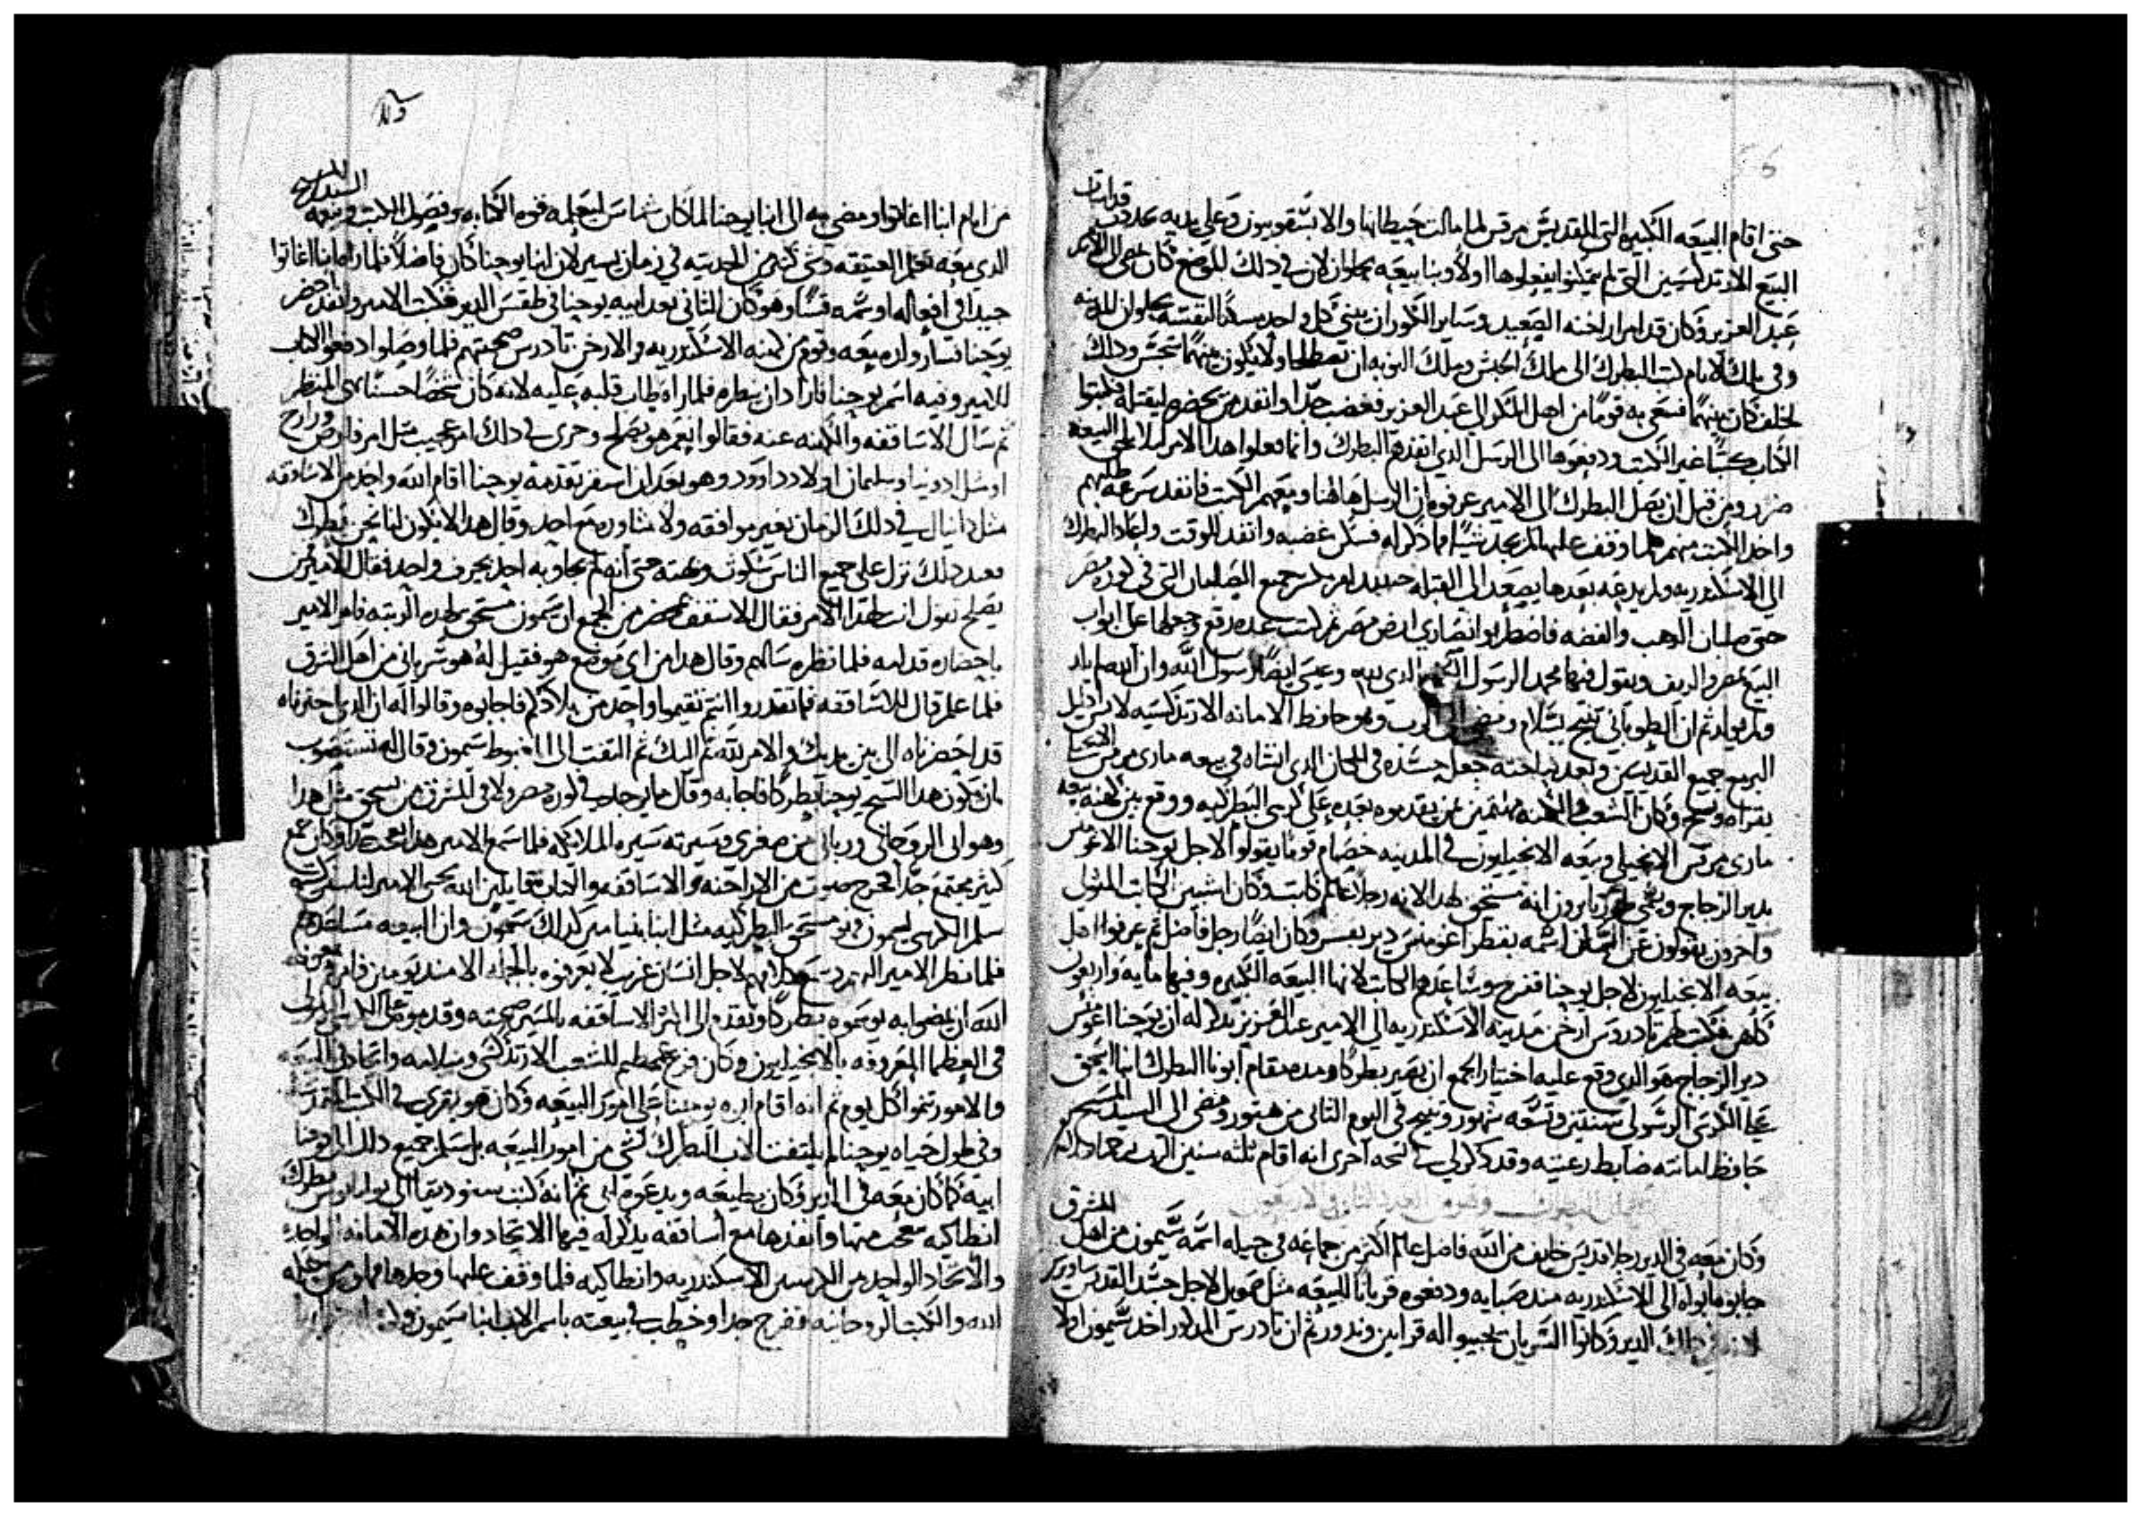 حتى اقام البيعه الكبيره التى للقديس مرقس لما مالت حيطانها والابسقوبيون وعلى يديه جددت
البيع الارتدكسيين التى لم يمكنوا يفعلوها اولا وبنا بيعه بحلوان لان فى ذلك الموضع كان
عبد العزيز وكان قد امر اراخنه الصعيد وساير الكور ان يبنى كل واحد مسكنا لنفسه بحلوان المدينه
وفى تلك الايام كتب البطرك الى ملك الحبش وملك النوبه ان يصطلحا ولا يكون بينهما سجس وذلك
لخلف كان بينهما فسعى به قوما من اهل المكر الى عبد العزيز فغضب جدا وانفد من يحضره ليقتله فكتبوا
الكتاب كتبا غير الكتب ودفعوها الى الرسل الذى انفدهم البطرك وانما فعلوا هدا الامر ليلا يلحق البيعه
ضرر ومن قبل ان يصل البطرك الى الامير عرفوه ان الرسل هاهنا ومعهم الكتب فانفد بسرعه
واخد الكتب منهم فلما وقف عليها لم يجد شيا مما ذكر له فسكن غضبه وانفد للوقت واعاد البطرك
الى الاسكندريه ولم يدعه بعدها يصعد الى القبله حينيد امر بكسر جميع الصلبان التى فى كورة مصر
حتى صلبان الدهب والفضه فاضطربوا نصارى ارض مصر ثم كتب عده رقع وجعلها على ابواب
البيع بمصر والريف ويقول فيها محمد الرسول الكبير الدى لله وعيسى ايضا رسول الله وان الله لم يلد
ولم يولد ثم ان الطوبانى تنيح بسلام ومضى الى الرب وهو حافظ الامانه الارتدكسيه
جميع القديسين وبعد نياحته جعل جسده فى المكان الدى انشاه فى بيعه مارى مرقس
وكان الشعب والكهنه مهتمين بمن يقدموه بعده على كرسى البطركيه ووقع بين كهنه بيعه
مارى مرقس الانجيلى وبيعه الانجيليون فى المدينه خصام قوما يقولوا لاجل يوحنا الاغومنس
بدير الزجاج انه مستحق لهدا لانه رجلا عالم كاتب وكان اشبين الكاتب المتولى
واخرون يقولون عن انسان اسمه بقطر اغومنس دير بفسر وكان ايضا رجل فاضل ثم عرفوا اهل
بيعه الانجيليون لاجل يوحنا ففرح وساعدهم الكاتب لانها البيعه الكبيره وفيها مايه واربعون
كاهن فكتب لهم تادروس ارخن مدينه الاسكندريه الى الامير عبد العزيز يدكر له ان يوحنا اغومنس
دير الزجاج هو الدى وقع عليه اختيار الجمع ان يصير بطركا ومده مقام ابونا البطرك انبا اسحق
على الكرسى الرسولى سنتين وتسعه شهور وتنيح فى اليوم الثانى من هتور ومضى الى السيد المسيح
حافظ امانته ضابط رعيته وقد ذكر لى فى نسخه اخرى انه اقام ثلثه سنين
وكان معه فى الدير رجلا قديس خايف من الله فاضل عالم اكثر من جماعه فى جيله اسمه سيمون من اهل المشرق
جابوه ابواه الى الاسكندريه مند صباه ودفعوه قربانا للبيعه مثل صمويل لاجل جسد القديس ساويرس
لانه فى ذلك الدير وكانوا السريان يجيبوا له قرابين وندور ثم ان تادرس المدكور اخد سيمون اولا
من ايام انبا اغاتوا ومضى به الى انبا يوحنا لما كان شماس ليعلمه قوه الكتابه وفصول الكتب وبيعه السيد المسيح
الدى معه تعلم العتيقه وشى كثير من الحديثه فى زمان يسير لان انبا يوحنا كان فاضلا فلما راه انبا اغاتوا
جيدا فى افعاله اوسمه قسا وهو كان الثانى بعد ابيه يوحنا فى طقس الدير فكتب الامير وانفد احضر
يوحنا فسار ولده معه وقوم من كهنه الاسكندريه والارخن تادرس صحبتهم فلما وصلوا دفعوا الكتاب
للامير وفيه اسم يوحنا فاراد ان ينظره فلما راه طاب قلبه عليه لانه كان شخصا حسنا بهى المنظر
ثم سال الاساقفه والكهنه عنه فقالوا نعم هو يصلح وجرى فى ذلك امر عجيب مثل امر فارص وزارح
او مثل ادونيا وسليمان اولاد داوود وهو بعد ان استقر تقدمة يوحنا اقام الله واحد من الاساقفه
مثل دانيال فى ذلك الزمان بغير موافقه ولا مشاوره مع احد وقال هدا لا يكون لنا نحن بطرك
بعد ذلك نزل على جميع الناس سكوت وبهته حتى انهم لم يجاوبه احد بحرف واحد فقال الامير
يصلح تقول انت لهدا الامر فقال الاسقف بمحضر من الجمع ان سيمون مستحق لهده الرتبه فامر الامير
باحضاره قدامه فلما نظره سالهم وقال هدا من اى موضع هو فقيل له هو سريانى من اهل الشرق
فلما علم قال للاساقفه فما تقدروا انتم تقيموا واحد من بلادكم فاجابوه وقالوا له ان الدى اخترناه
قد احضرناه الى بين يديك والامر لله ثم اليك ثم التفت الى المغبوط سيمون وقال له تستصوب
بان يكون هدا الشيخ يوحنا بطركا فاجابه وقال ما يوجد فى كورة مصر ولا فى المشرق من يستحق مثل هدا
وهو ابى الروحانى وربانى من صغرى وسيرته سيره الملايكه فلما سمع الامير هدا تعجب جدا وكان جمع
كثير مجتمع جدا فخرج صوت من الاراخنه والاساقفه والكتاب قايلين الله يحيى الامير لنا سنين كثيره
سلم الكرسى لسيمون فهو مستحق البطركيه مثل انبا بنيامين كدلك سيمون وان البيعه
فلما نظر الامير لاجل انسان غريب لا يعرفوه بالجمله الا مند يومين فامر
الله ان يمضوا به يوسموه بطركا وتقدم الى الاساقفه بالمسير صحبته وقدموه على الكرسى الرسولى
فى العظما المعروفه بالانجيليون وكان فرح عظيم للشعب الارتدكسى وسلامه واتحاد فى البيعه
والامور تنموا كل يوم ثم انه اقام ابوه يوحنا على امور البيعه وكان هو يقرى فى الكتب المقدسه
وفى طول حياه يوحنا لم يلتفت الاب البطرك لشى من امور البيعه بل سلم جميع ذلك الى يوحنا
ابيه كما كان معه فى الدير وكان يطيعه ويدعوه ابى ثم انه كتب سنوديقا الى يوليانوس بطرك
انطاكيه وانفدها مع اساقفه يدكر له فيها الاتحاد وان هده الامانه الواحده
والاتحاد الواحد من الكرسيين الاسكندريه وانطاكيه فلما وقف عليها وجدها
الله والكتب الروحانيه ففرح جدا وخطب فى بيعته باسم الاب انبا سيمون